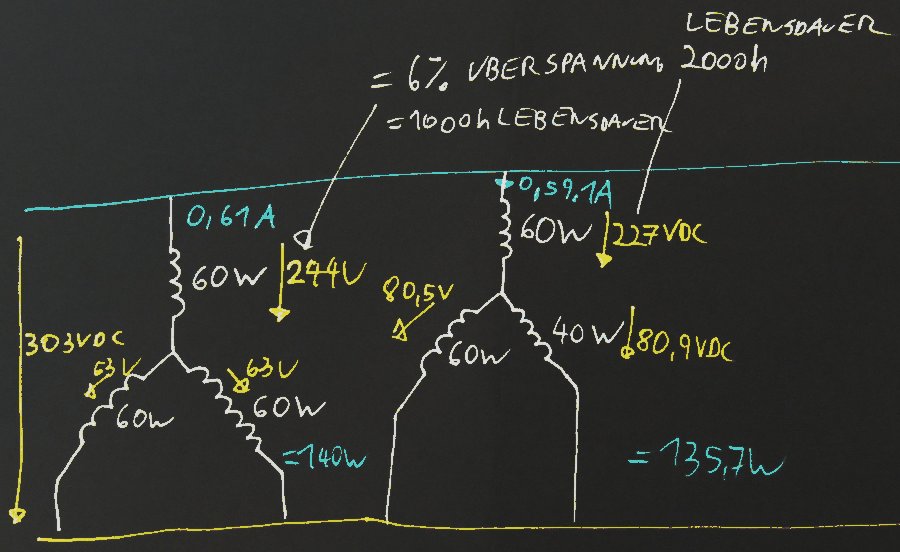 LEBENSDAUER
2000h
= 6% UBERSPANNUNG
=1000h LEBENSDAUER
0,61A
0,59.1A
60W
244V
60W
227VDC
303VDC
63V
63V
60W
60W
=140W
80,5V
60W
40W
80,9VDC
=135,7W